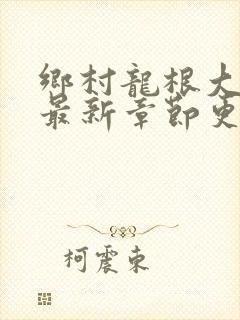 鄉村龍根大
最新章節更
柯震東